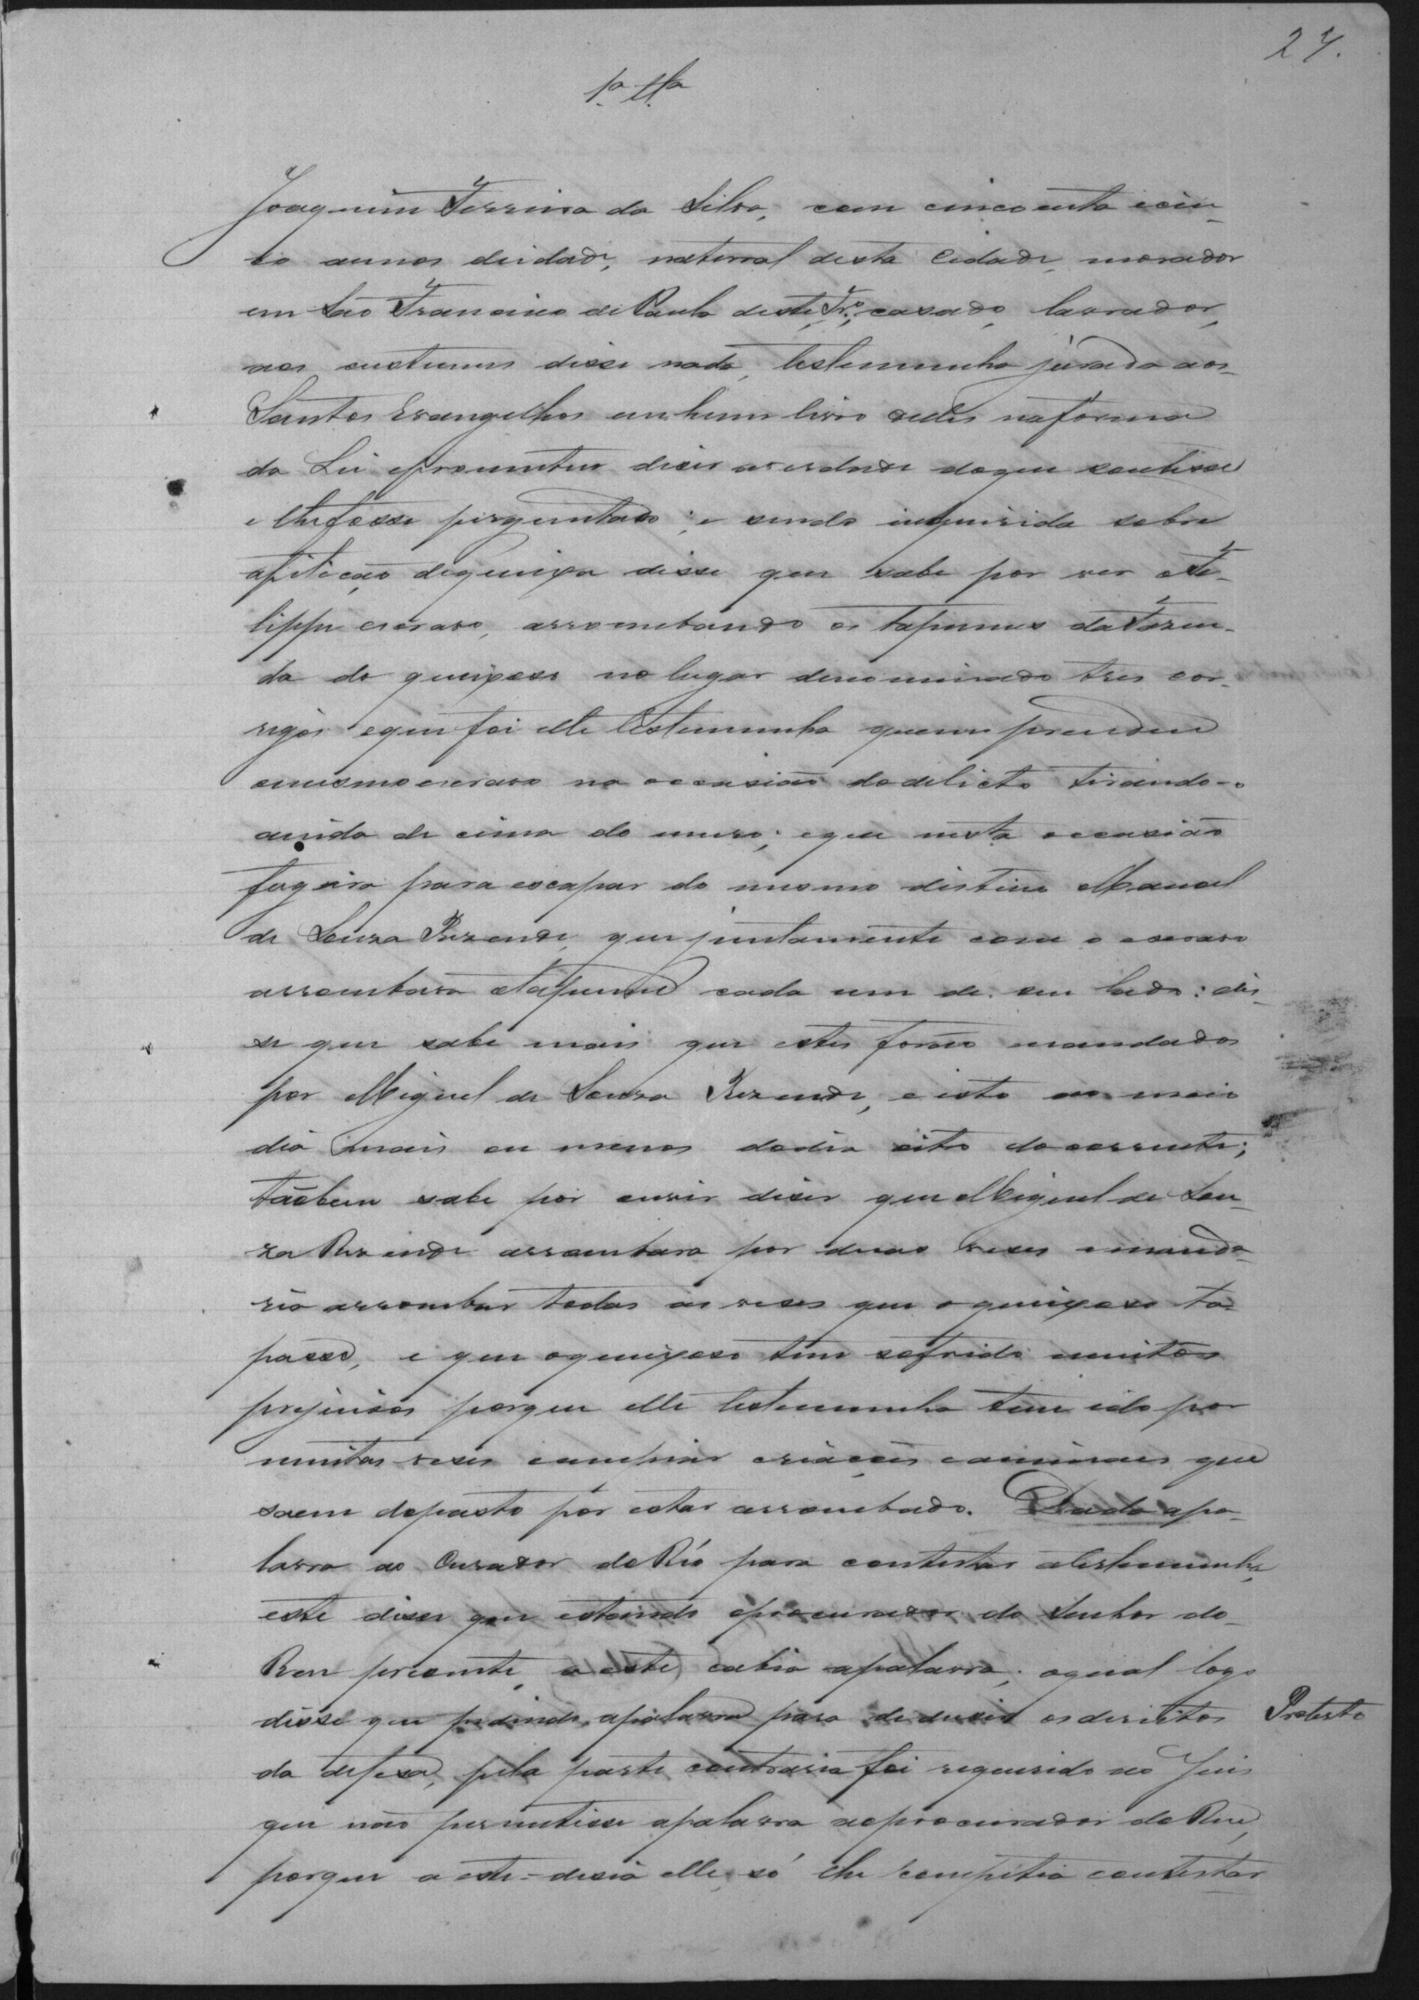 27.
1.ª T.ª
Joaquim Ferreira da Silva, com cincoenta e cin-
co annos deidade, natural desta Cidade, morador
em São Francisco de Paula deste Tr.º, casado, lavrador,
aos custumes disse nada, testemunha jurada aos
Santos Evangelhos em hum livro delles na forma
da Lei eprometteu diser averdade doque soubisse
e lhe fosse perguntado; e sendo inquirida sobre
apetição dequeixa disse que sabe por ver o Fe-
lippe escravo, arrombando os tapumes da Fazen-
da do queixoso no lugar denominado tres cor-
regos equi foi elle testemunha quem prendeu
omesmo escravo na occasião do delicto tirando-o
ainda de cima do muro; eque nesta occasião
fugira para escapar do mesmo distino Manoel
de Souza Rezende, que juntamente com o escravo
arrombava otapume cada um de seu lado: dis-
se que sabe mais que estes forão mandados
por Miguel de Souza Rezende, e isto ao meio
dia mais ou menos dodia oito do corrente;
tãobem sabe por ouvir diser que Miguel de Sou-
za Rezende arrombara por duas veses emanda-
ria arrombar todas as veses que oqueixoso ta-
passe, e que oqueixoso tem sofrido muitos
prejuisos porque elle testemunha tem ido por
muitas veses campiar criações eanimaes que
saem dopasto por estar arrombado. Dada apa-
lavra ao Curador do Réo para contestar atestemunha,
este disse que estando oprocurador do Senhor do
Reu presente, a este cabia apalavra; oqual logo
disse que pedindo apalavra para dedusir osdireitos
Protesto
da defesa, pela parte contraria foi requerido ao Juis
que não permitisse apalavra aoprocurador do Reu,
porque a este - desia elle, só lhe competia contestar